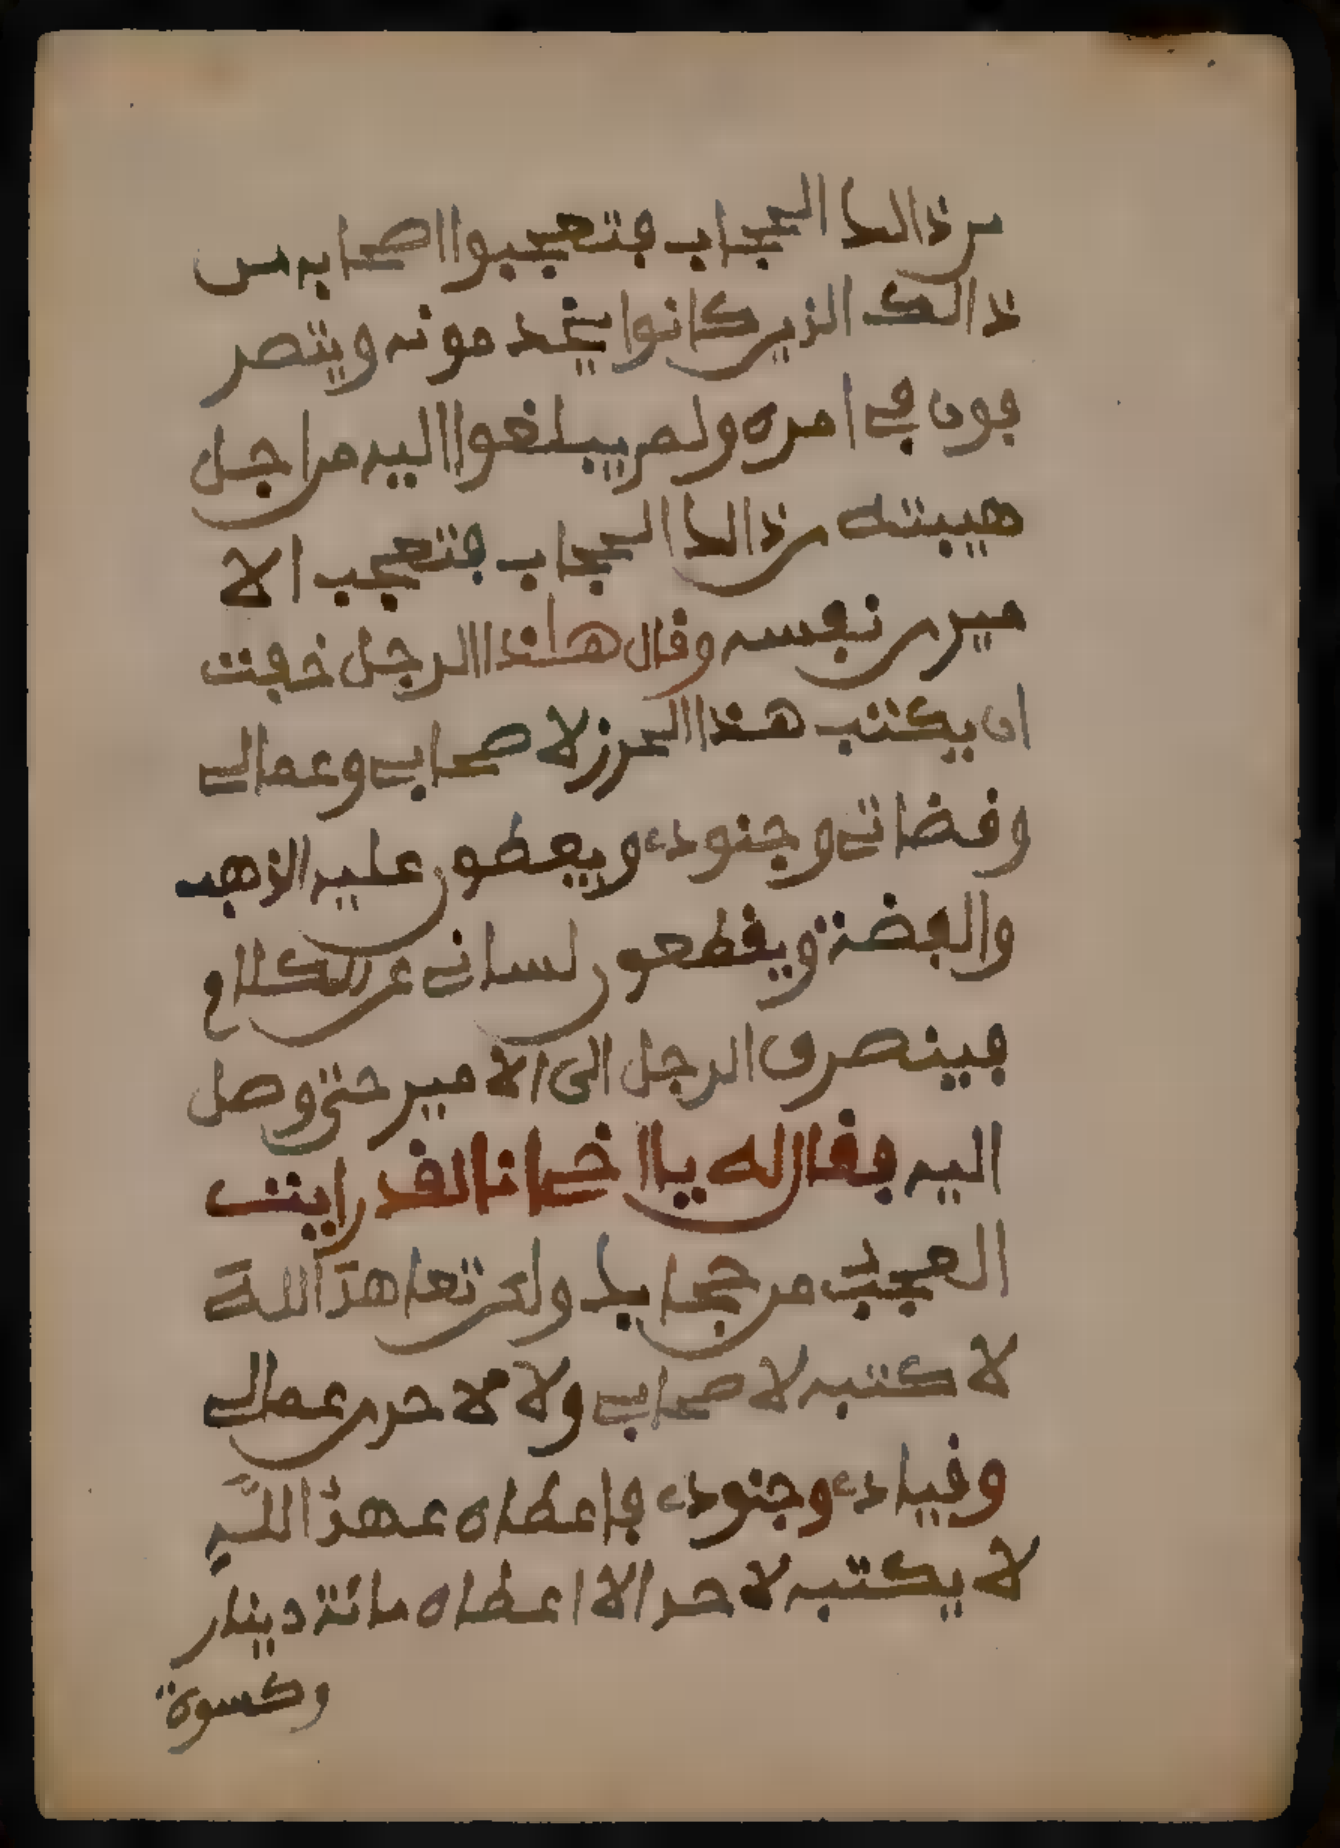 من ذالك الحجاب فتعجبوا اصحابه من
ذالك الذين كانوا يخدمونه ويتصر
فون في امره ولم يبلغوا اليه من اجل
هيبته من ذالك الحجاب فتعجب الا
مير من نفسه وقال هاذا الرجل خفت
ان يكتب هذا الحرز لاصحابي وعمالي
وقضاتي وجنودي ويعطون عليه الذهب
والفضة ويقطعون لساني عن الكلام
فينصرف الرجل الى الامير حتى وصل
اليه فقال له يا اخي انا لقد رايت
العجب من حجابك ولكن تعاهد الله
لا كتبه لاصحابي ولا لاحد من عمالي
وقيادي وجنودي فاعطاه عهد الله
لا يكتبه لاحد الا اعطاه مائة دينار
وكسوة